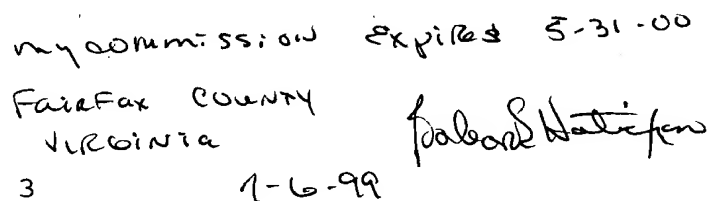 my commission Expires 5-31-00
FairFax COUNTY
VIRGINIA
3 1-6-99